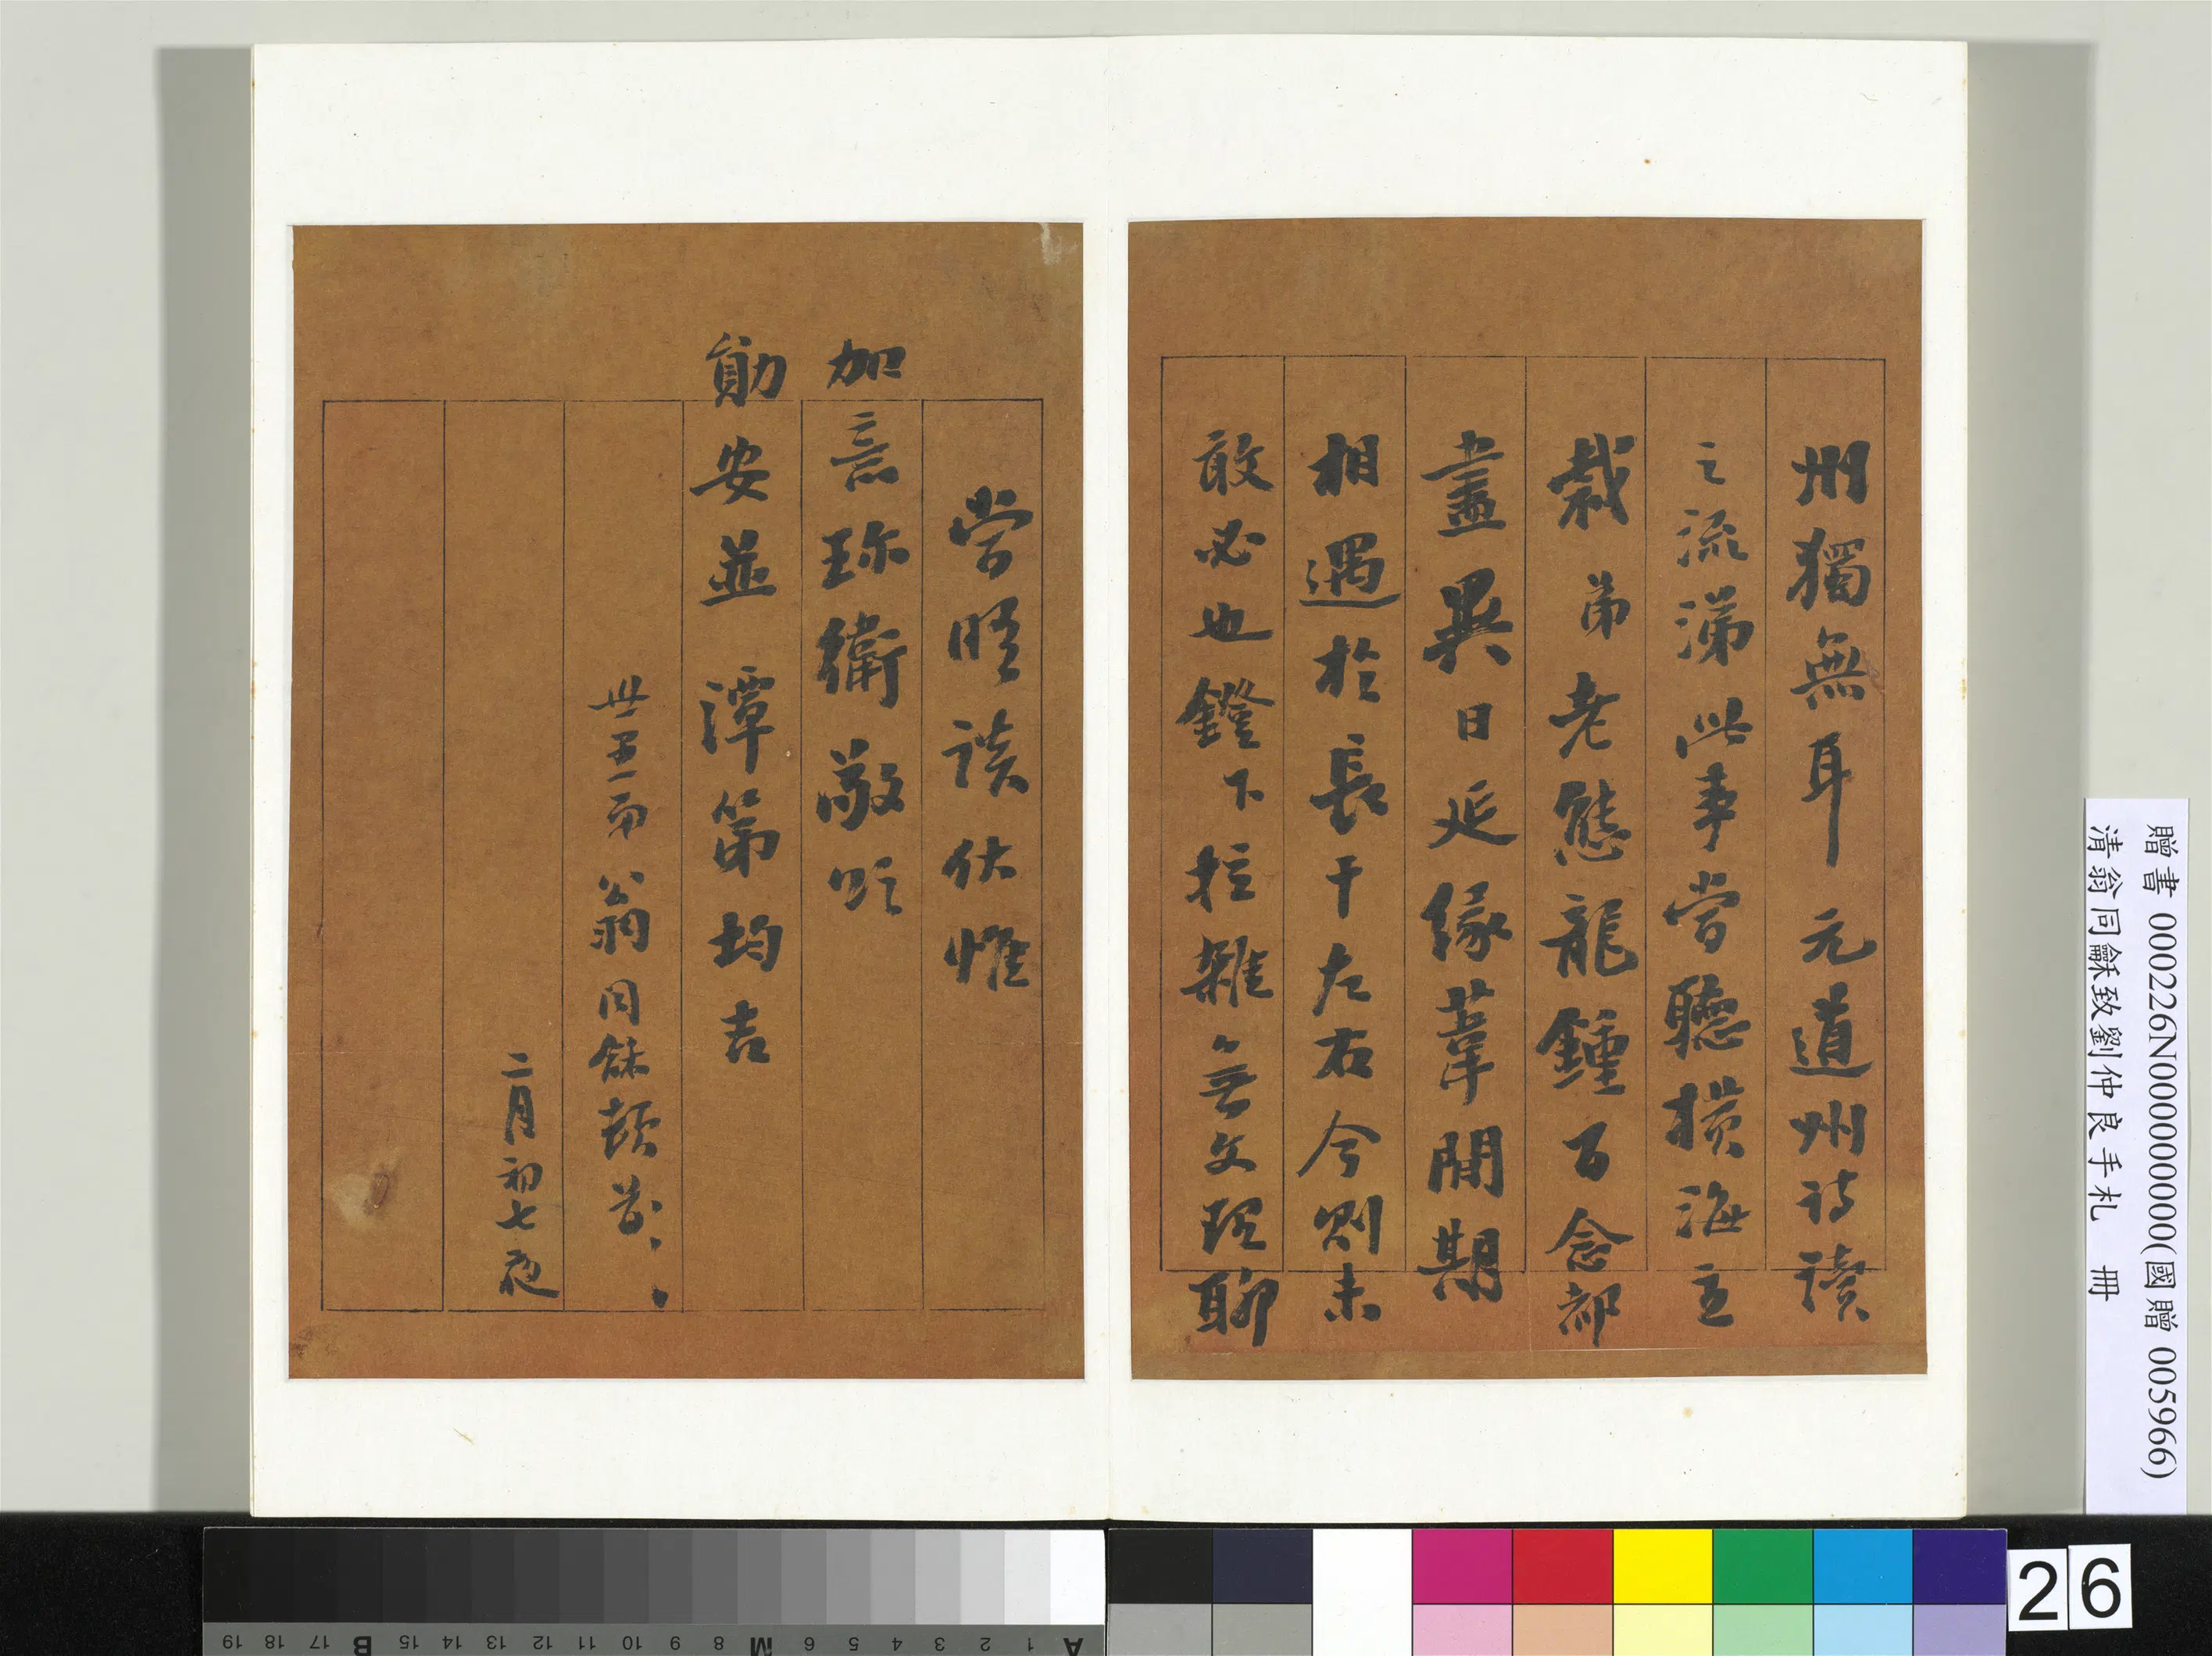 州獨無耳元道州詩讀
之流涕此事當聽損海立
裁弟老態龍鍾百念都
盡異日延緣葦閒期
相遇於長干左右今則未
敢必也鐙下拉雜無文理聊
當晤談伏惟
加意珍衛敬叩
勛安並潭第均吉
世弟翁同龢頓首
二月初七夜
贈書 000226N000000000(國贈 005966)
清翁同龢致劉仲良手札 冊
A 1 2 3 4 5 6 M 8 9 10 11 12 13 14 15 B 17 18 19
26